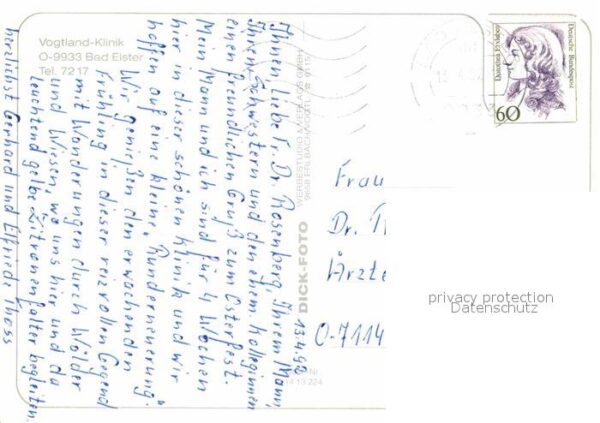 Vogtland-Klinik
O-9933 Bad Elster
Tel. 72 17
13.4.92
Ihnen, liebe Fr. Dr. Rosenberg, Ihrem Mann,
Ihren Schwestern und den ehem. Kolleginnen
einen freundlichen Gruß zum Osterfest.
Mein Mann und ich sind für 4 Wochen
hier in dieser schönen Klinik und wir
hoffen auf eine kleine „Runderneuerung“.
Wir genießen den erwachenden
Frühling in dieser reizvollen Gegend
mit Wanderungen durch Wälder
und Wiesen, wo uns hier und da
leuchtend gelbe Zitronenfalter begleiten.
herzlichst Gerhard und Elfriede Thoss
DICK-FOTO
WERBESTUDIO &VERLAGS GMBH
Deutsche Bundespost
Dorothea Erxleben
60
Frau
Dr.
Ärzte
O-7114
privacy protection
Datenschutz